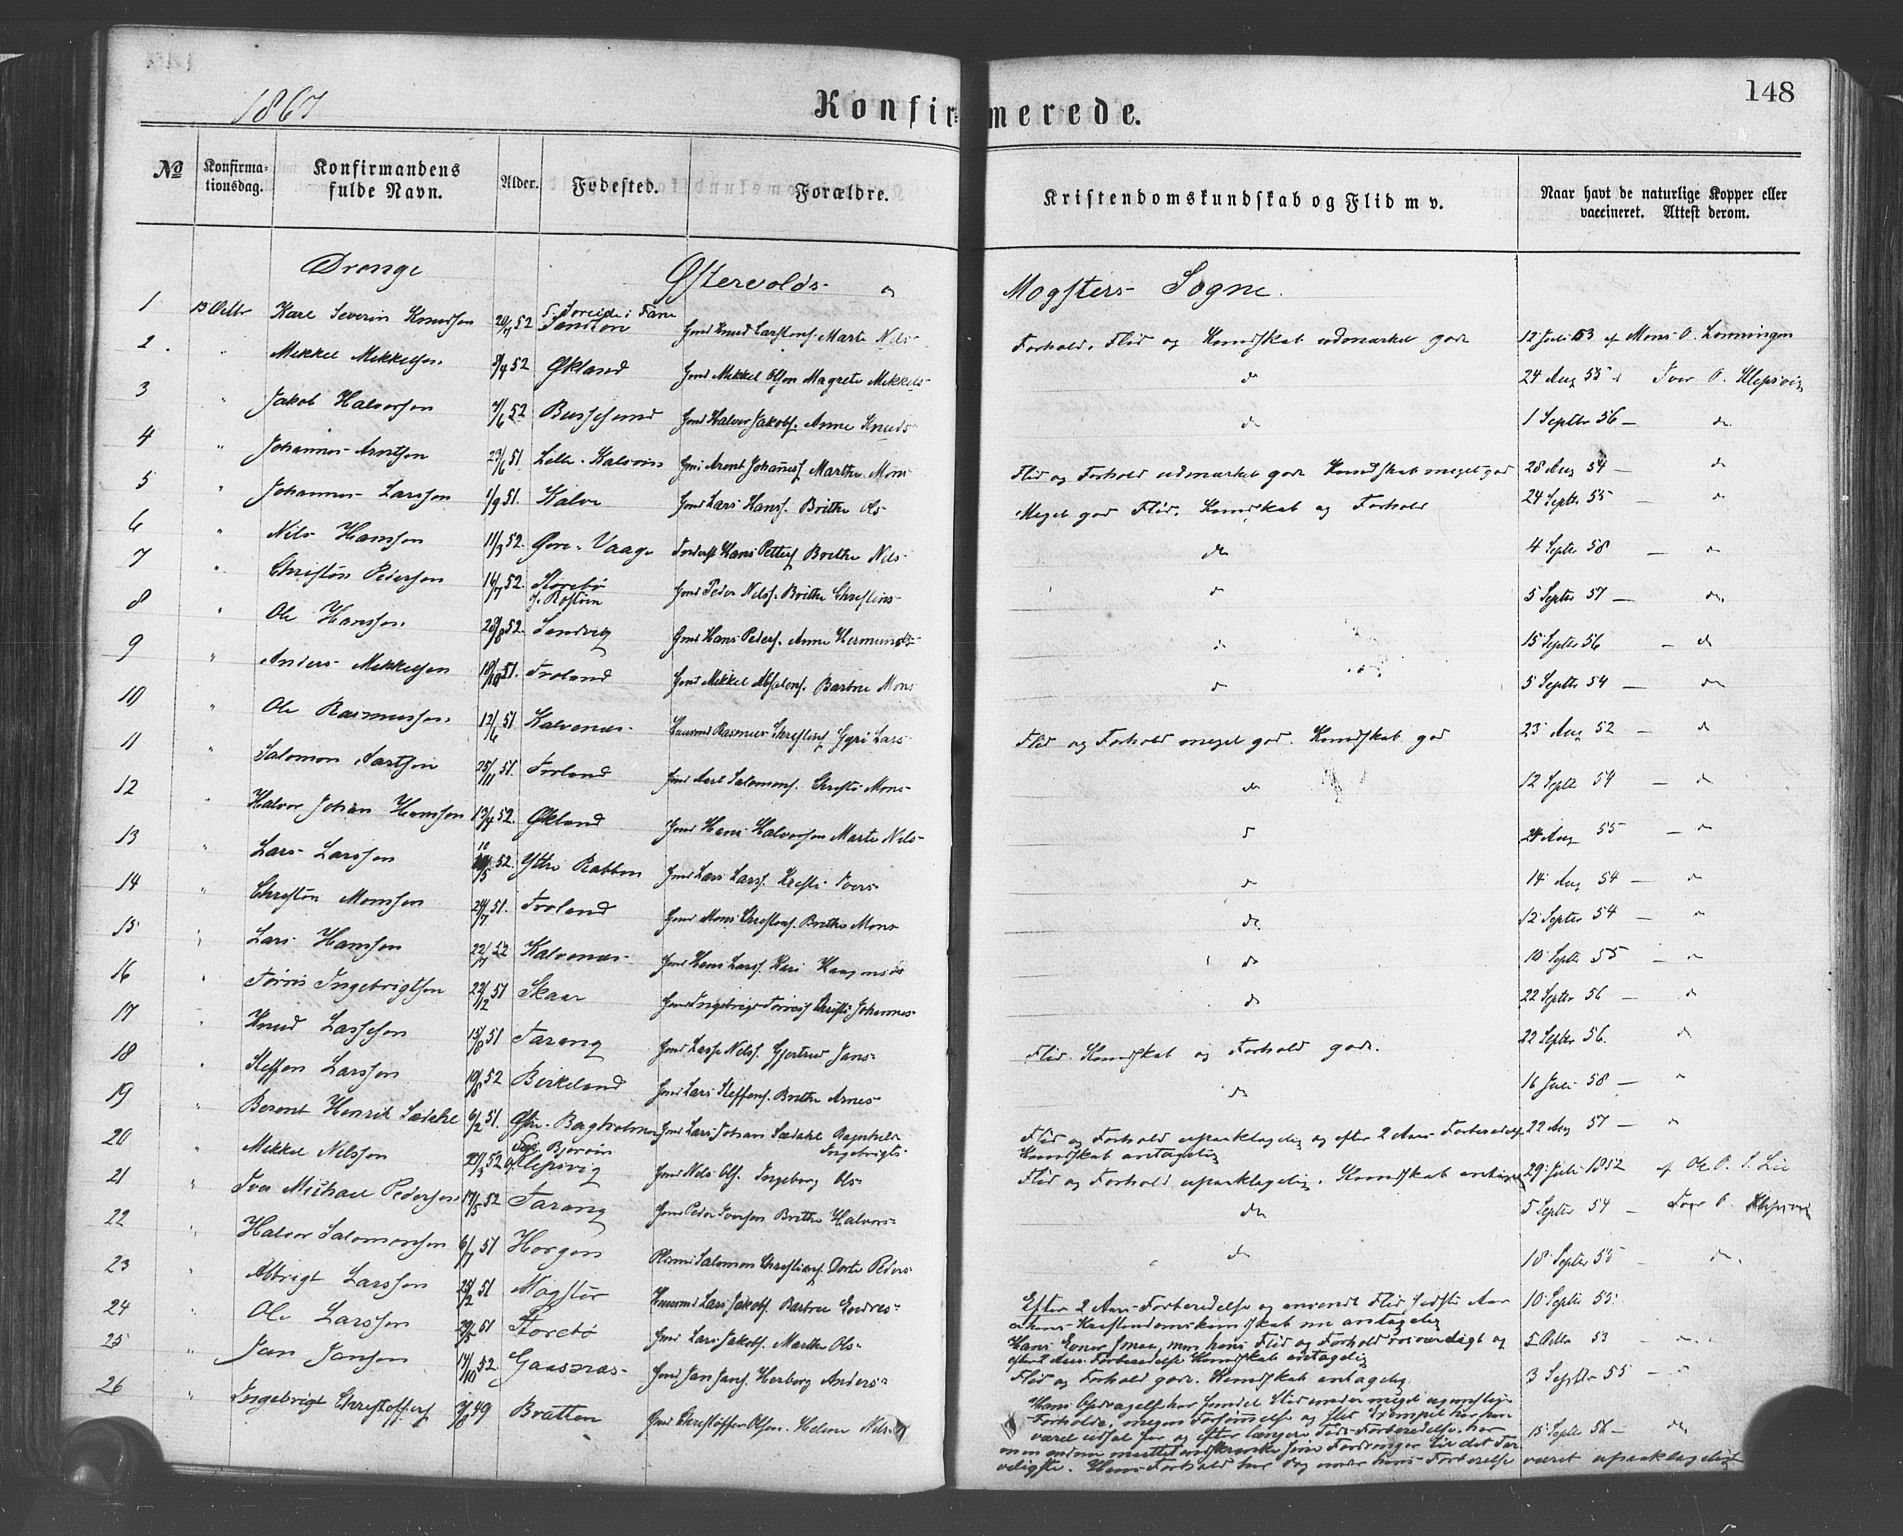 148
1867
Konfirmerede.
No
Konfirma-
tionsdag.
Konfirmandens
fulde Navn.
Alder.
Fødested.
Forældre.
Kristendomskundskab og Flid m v.
Naar havt de naturlige Kopper eller
vaccineret. Attest derom.
Drenge Østervolds- og Møgsters- Sogne.
1 13 Octbr Karl Severin Knudsen 20/7 52 Søreide i Fane Gmd Knud Larsens. Marte Nils- Forhold, Flid og Kundskab udmærket gode 12 Juli 53 af Mons O. Lønningen
2 " Mikkel Mikkelsen 8/4 52 Økland Gmd Mikkel Olsen Magrete Mikkels- do 24 Aug 55 Iver O. Klepsvig
3 " Jakob Halvorsen 7/6 52 Bussesund Gmd Halvor Jakobs. Anne Knuds- do 1 Septbr 56 - do
4 " Johannes Arntsen 23/6 51 Lille-Kalsøen Gmd Arent Johaness Marthe Mons Flid og Forhold udmærket gode Kundskab meget god 28 Aug 54 - do
5 " Johannes Larssen 1/9 51. Kalve Gmd Lars Hanss. Brithe Ols- Meget god Flid, Kundskab og Forhold 24 Septbr 55 - do
6 " Nils Hanssen 11/3 52. Øvre-Vaage Hans Petters Brithe Nils- do 4 Septr 58 - do
7 " Christen Pedersen 16/7 52. Storebø Gmd Peder Nilss. Brithe Christens- do 5 Septbr 57 - do
8 " Ole Hanssen 28/8 52. Sandvig Gmd Hans Peders. Anne Hermunds- do 15 Septbr 56 - do
9 " Anders Mikkelsen 18/10 51. Troland Gmd Mikkel Absalons. Barbro Mons do 5 Septbr 54 - do
10 " Ole Rasmussen 12/6 51 Kalvenæs- Rasmus Gyri Lars- Flid og Forhold meget god. Kundskab god 23 Aug 52 - do
11 " Salomon Aartsen 25/11 51. Forland Gmd Salomons. Christi Mons- do 12 Septbr 54 - do
12 Halvor Johan Hansen 13/4 52. Økland Gmd Hans Halvorsen Marte Nils- 24 Aug 55 - do
13 " Lars Larssen 10/5 52. Ytre Rabben Gmd Lars Larss. Kristi Ivers- do 14 Aug 54 - do
14 " Christen Monssen 24/7 51. Forland Gmd Mons Christens. Brithe Mons- do 12 Septbr 54 -
15 " Lars Hanssen 22/7 52 Kalvenæs- Gmd Hans Larss. Kari do 10 Septbr 55 -
16 " Tørris Ingebrigtsen 22/12 51 Skaar Gmd Ingebrigt Tørress Christi Johannes- do 22 Septbr 56 - do
17 Knud Lassesen 15/8 51 Tarang Gmd Lasse Nilss. Gjertrud Jans- Flid. Kundskab og Forhold gode. 22 Septbr 56. do
18 Steffen Larssen 10/8 52 Birkeland Gmd Lars Steffens. Brithe Arnes- do 16 Juli 58 -
19 " Berent Henrik Sædahl 6/2 51. Bagholmen Gmd Lars Johan Sædahl Ragnhild Ingebrigts- Flid og Forhold upaaklagelig og efter 2 Aars Forberedelse Kundskab antagelig 22 Aug 57 -
20 " Mikkel Nilssen 52 Bjørøen Klepsvig Gmd Nils Ols. Ingeborg Ols- Flid og Forhold upaaklagelig. Kundskab antagel. 29 Juli 1852 af Ole O. S. Lie
21 " Iver Michael Pedersen 17/5 52 Tarang Gmd Peder Iversen Brithe Halvors- do 5 Septbr 54 - Iver O. Klepsvig
22 Halvor Salomonsen 6/7 51 Horgen Salomon Dorte Peders- do 18 Septbr 55 - do
23 " Abrigt Larssen 25/2 51 Møgster Lars Jakobs. Barbro Endres- Efter 2 Aars Forberedelse og anvendt Flid sidste Aar
antagelig 10 Septbr 55
24 " Ole Larssen 29/5 51 Storebø Gmd Lars Jakobs. Marthe Ols- Hans Evner smaa, men hans Flid og Forhold og
efter 2 Aars Forberedelse Kundskab antagelig 5 Octbr 53 -
25 " Jan Jansen 14/10 52. Gaasnæs- Gmd Jan Jans. Herborg Anders- Flid og Forhold gode. Kundskab antagelig. 3 Septbr 55 -
26 " Ingebrigt Christoffers 49 Bratten Gmd Christoffer Olsen. Helene Nils- Hans Opdragelse har fundet Sted under meget
Forholde; megen Forsømmelse og slet Exempel har han
været udsat for og efter længere Tids Forberedelse har 15 Septbr 56 - do
sine Fordringer til det
Hans Forhold har dog under hans Forberedelse været upaaklageligt